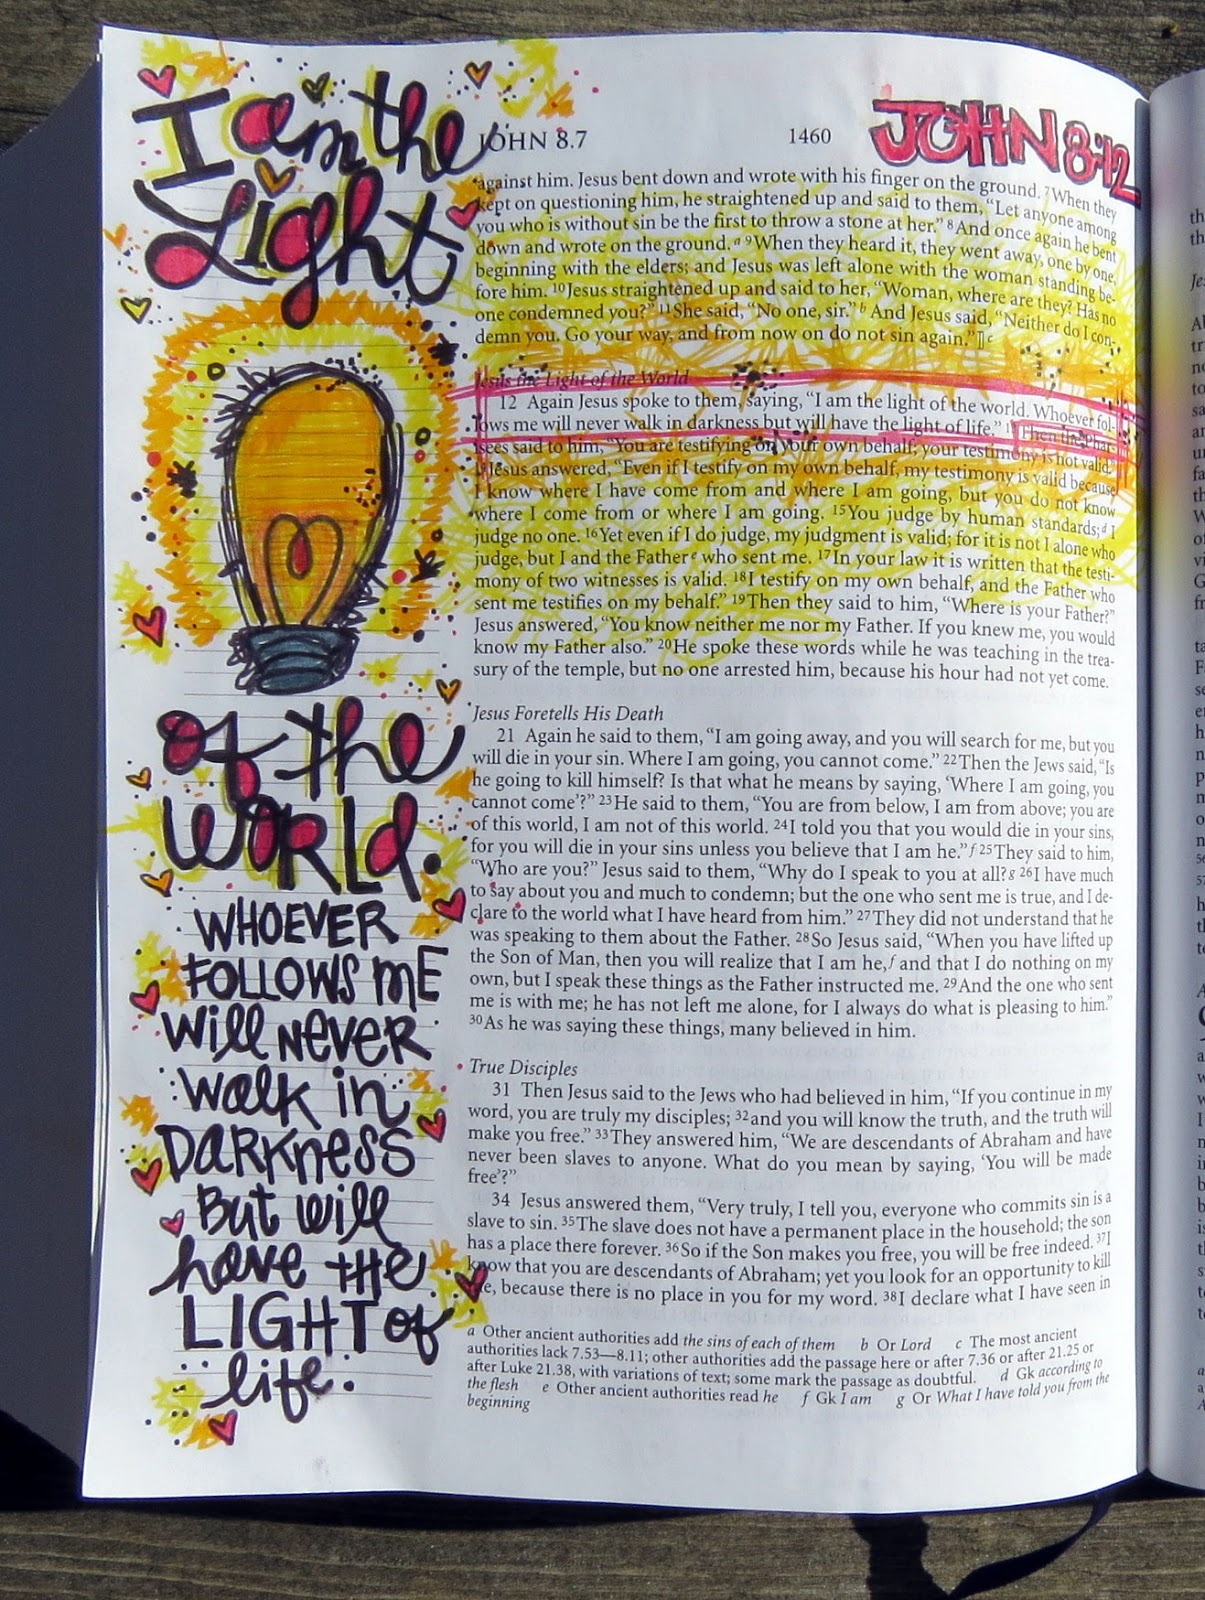 I am the
Light
of the
WORLD.
WHOEVER
FOLLOWS ME
will NEVER
walk in
DARKNESS
But will
have THE
LIGHT of
life.
JOHN 8.7 1460 JOHN 8:12
against him. Jesus bent down and wrote with his finger on the ground. 7When they
kept on questioning him, he straightened up and said to them, “Let anyone among
you who is without sin be the first to throw a stone at her.” 8And once again he bent
down and wrote on the ground. a 9When they heard it, they went away, one by one,
beginning with the elders; and Jesus was left alone with the woman standing be-
fore him. 10Jesus straightened up and said to her, “Woman, where are they? Has no
one condemned you?” 11She said, “No one, sir.” b And Jesus said, “Neither do I con-
demn you. Go your way, and from now on do not sin again.”]] c
Jesus the Light of the World
12 Again Jesus spoke to them, saying, “I am the light of the world. Whoever fol-
lows me will never walk in darkness but will have the light of life.” 13Then the Phar-
isees said to him, “You are testifying on your own behalf; your testimony is not valid.”
14Jesus answered, “Even if I testify on my own behalf, my testimony is valid because
I know where I have come from and where I am going, but you do not know
where I come from or where I am going. 15You judge by human standards; d I
judge no one. 16Yet even if I do judge, my judgment is valid; for it is not I alone who
judge, but I and the Father e who sent me. 17In your law it is written that the testi-
mony of two witnesses is valid. 18I testify on my own behalf, and the Father who
sent me testifies on my behalf.” 19Then they said to him, “Where is your Father?”
Jesus answered, “You know neither me nor my Father. If you knew me, you would
know my Father also.” 20He spoke these words while he was teaching in the trea-
sury of the temple, but no one arrested him, because his hour had not yet come.
Jesus Foretells His Death
21 Again he said to them, “I am going away, and you will search for me, but you
will die in your sin. Where I am going, you cannot come.” 22Then the Jews said, “Is
he going to kill himself? Is that what he means by saying, ‘Where I am going, you
cannot come’?” 23He said to them, “You are from below, I am from above; you are
of this world, I am not of this world. 24I told you that you would die in your sins,
for you will die in your sins unless you believe that I am he.” f 25They said to him,
“Who are you?” Jesus said to them, “Why do I speak to you at all? g 26I have much
to say about you and much to condemn; but the one who sent me is true, and I de-
clare to the world what I have heard from him.” 27They did not understand that he
was speaking to them about the Father. 28So Jesus said, “When you have lifted up
the Son of Man, then you will realize that I am he, f and that I do nothing on my
own, but I speak these things as the Father instructed me. 29And the one who sent
me is with me; he has not left me alone, for I always do what is pleasing to him.”
30As he was saying these things, many believed in him.
True Disciples
31 Then Jesus said to the Jews who had believed in him, “If you continue in my
word, you are truly my disciples; 32and you will know the truth, and the truth will
make you free.” 33They answered him, “We are descendants of Abraham and have
never been slaves to anyone. What do you mean by saying, ‘You will be made
free’?”
34 Jesus answered them, “Very truly, I tell you, everyone who commits sin is a
slave to sin. 35The slave does not have a permanent place in the household; the son
has a place there forever. 36So if the Son makes you free, you will be free indeed. 37I
know that you are descendants of Abraham; yet you look for an opportunity to kill
me, because there is no place in you for my word. 38I declare what I have seen in
a Other ancient authorities add the sins of each of them b Or Lord c The most ancient
authorities lack 7.53—8.11; other authorities add the passage here or after 7.36 or after 21.25 or
after Luke 21.38, with variations of text; some mark the passage as doubtful. d Gk according to
the flesh e Other ancient authorities read he f Gk I am g Or What I have told you from the
beginning